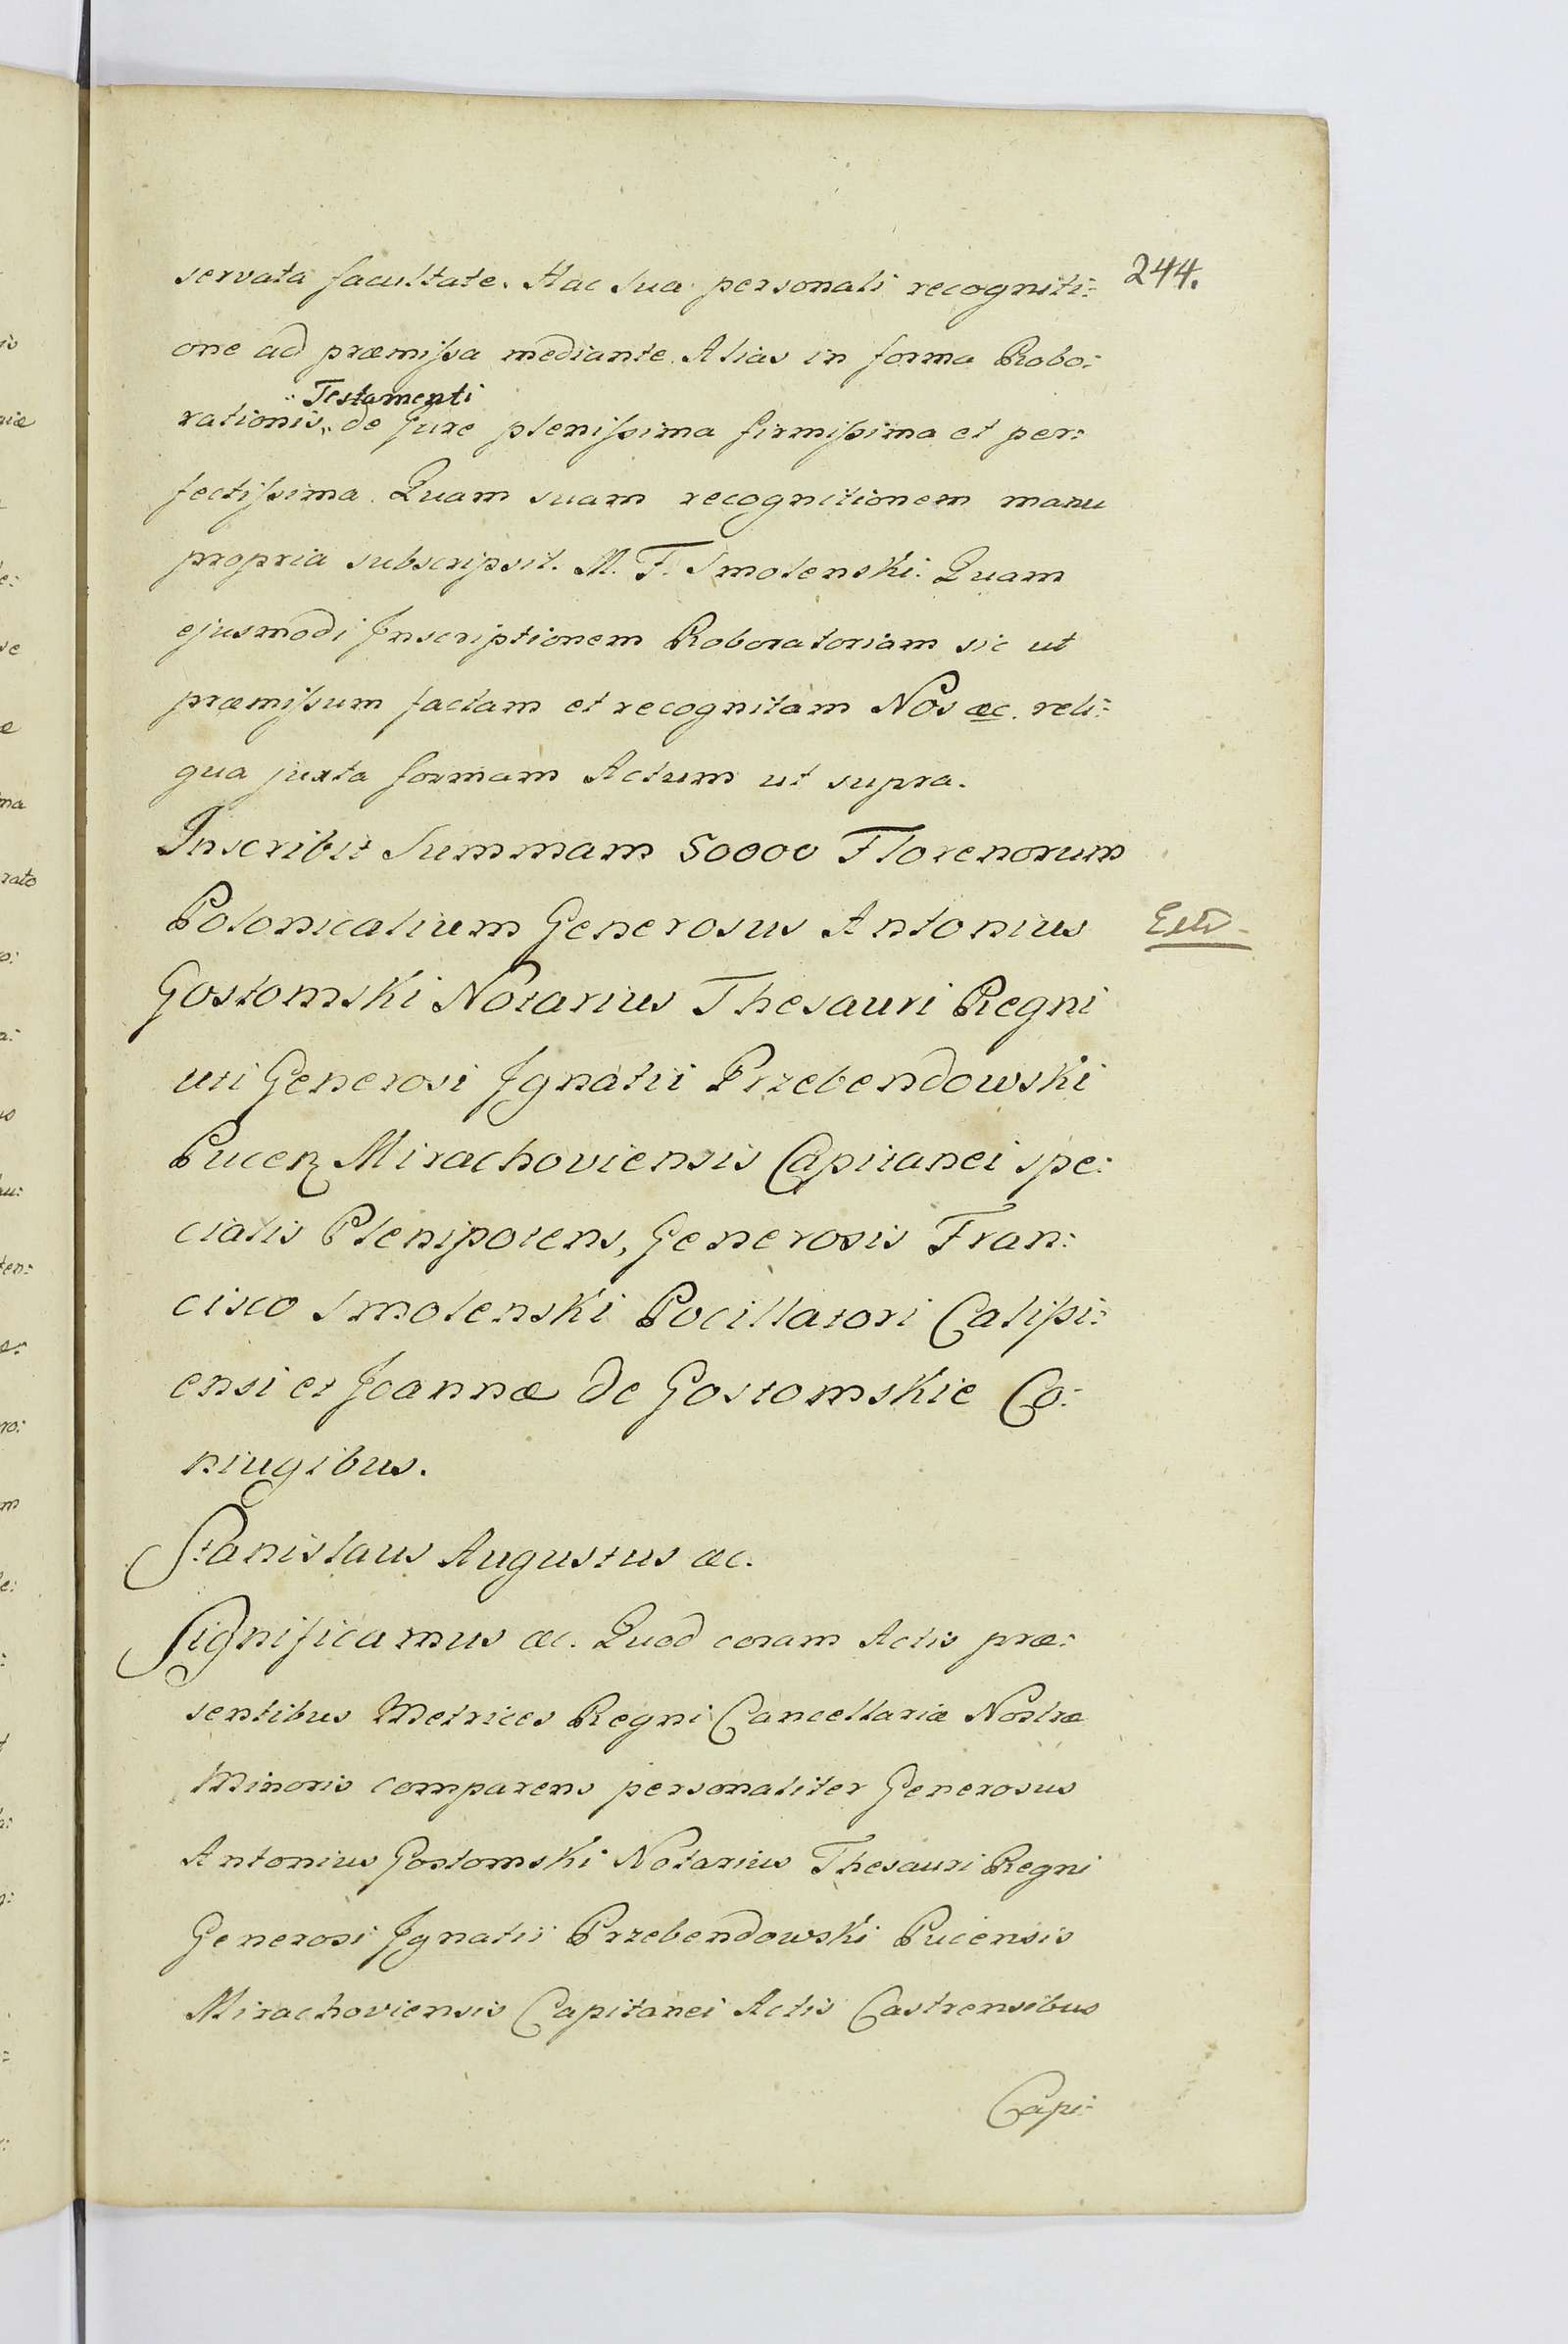 244.
servata facultate. Hac Sua personali recogniti:
one ad præmissa mediante. Alias in forma Robo:
Testamenti
rationis de Jure plenissima firmissima et per:
fectissima. Quam suam recognitionem manu
propria subscripsit. M. F. Smolenski. Quam
ejusmodi Inscriptionem Roboratoriam sic ut
præmissum factam et recognitam Nos æc. reli:
qua juxta formam Actum ut supra.
Inscribit Summam 50000 Florenorum
Polonicalium Generosus Antonius
Gostomski Notarius Thesauri Regni
uti Generosi Ignatii Przebendowski
Pucen Mirachoviensis Capitanei spe:
cialis Plenipotens, Generosis Fran:
cisco Smolenski Pocillatori Calissi:
ensi et Joannæ de Gostomskie Co:
niugibus.
Stanislaus Augustus æc.
Significamus æc. Quod coram Actis præ:
sentibus Metrices Regni Cancellariæ Nostræ
Minoris comparens personaliter Generosus
Antonius Gostomski Notarius Thesauri Regni
Generosi Ignatii Przebendowski Pucensis
Mirachoviensis Capitanei Actis Castrensibus
Capi: